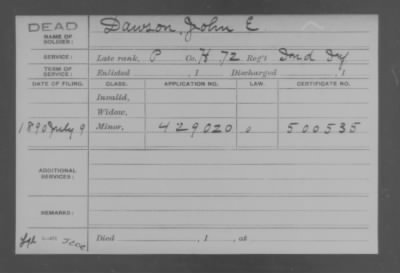 DEAD
NAME OF SOLDIER: Dawson, John E
SERVICE: Late rank, P Co. H 72 Reg't Ind Inf
TERM OF SERVICE: Enlisted , 1 Discharged , 1
DATE OF FILING. CLASS. APPLICATION NO. LAW. CERTIFICATE NO.
Invalid,
Widow,
1890 July 9 Minor, 429020 500535
ADDITIONAL SERVICES:
REMARKS:
Died , 1 , at